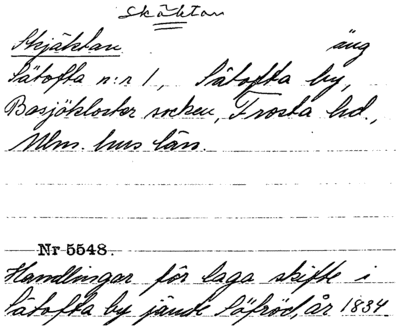 Skäktan
Skjäktan äng
Sätofta n:r 1, Sätofta by,
Bosjökloster socken, Frosta hd.,
Mlm. hus län.
Nr 5548.
Handlingar för laga skifte i
Sätofta by jämte Söfröd, år 1834.